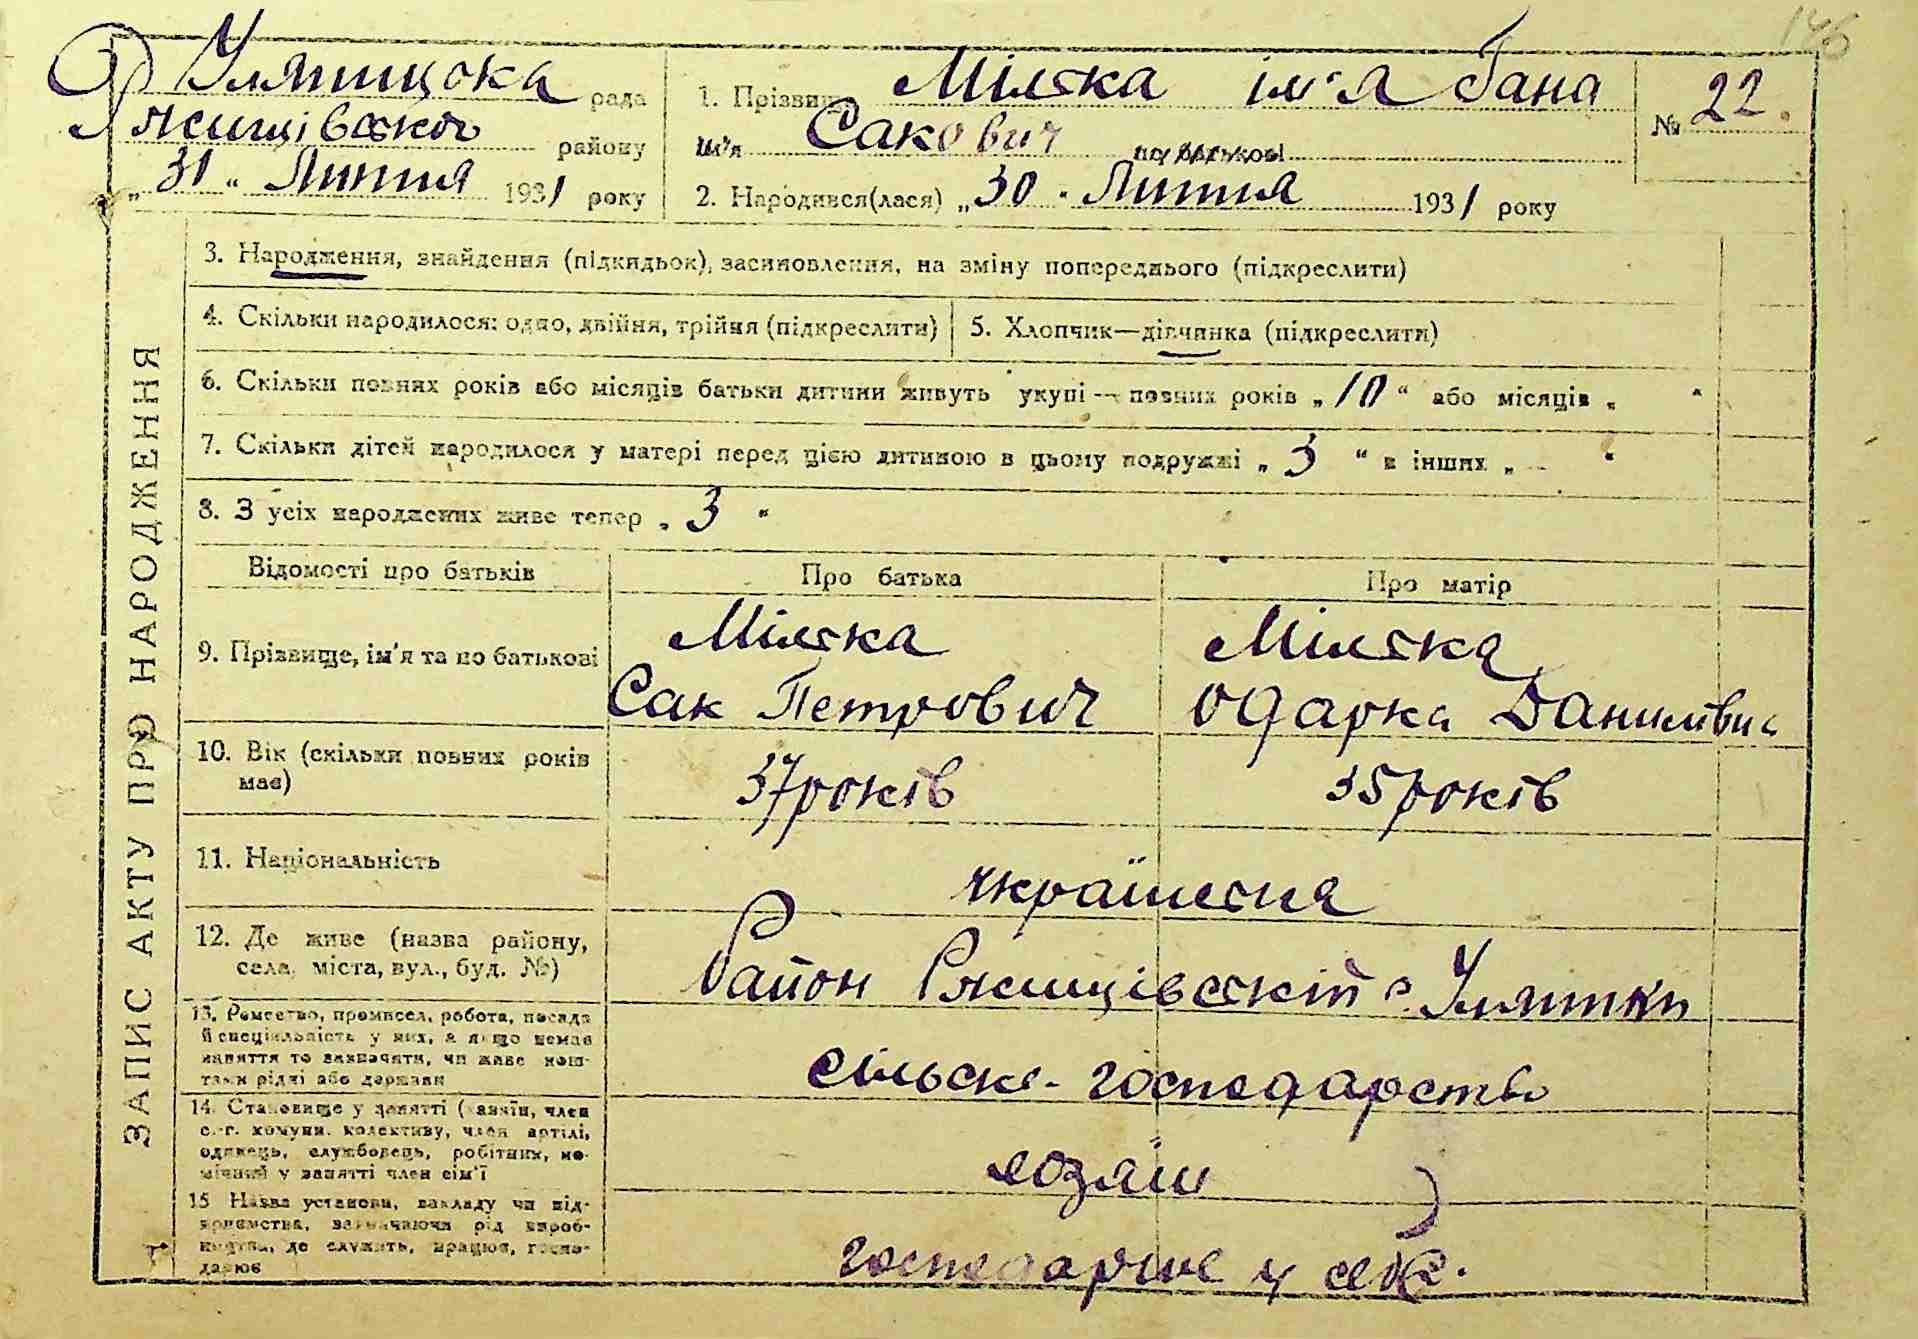 146
Уляницька рада
Ржищівського району
„31“ Липня 1931 року
1. Прізвище Мінська ім'я Гана
ім'я Сакович по батькові
№ 22.
2. Народився(лася) „30“ Липня 1931 року
ЗАПИС АКТУ ПРО НАРОДЖЕННЯ
3. Народження, знайдення (підкидьок), засиновлення, на зміну попереднього (підкреслити)
4. Скільки народилося: одно, двійня, трійня (підкреслити)
5. Хлопчик—дівчинка (підкреслити)
6. Скільки повних років або місяців батьки дитини живуть укупі — повних років „10“ або місяців „ “
7. Скільки дітей народилося у матері перед цією дитиною в цьому подружжі „3“ в інших „ - “
8. З усіх народжених живе тепер „3“
Відомості про батьків
Про батька
Про матір
9. Прізвище, ім'я та по батькові
Сак Петрович
Одарка
10. Вік (скільки повних років
має)
37 років
35 років
11. Національність
12. Де живе (назва району,
села, міста, вул., буд. №)
Район Ржищівський с.
13. Ремество, промисел, робота, посада
й спеціяльність у них, а якщо немає
заняття то зазначити, чи живе кош-
тами рідні або держави
сільське-господарство
14. Становище у занятті (хазяїн, член
с.-г. комуни, колективу, член артілі,
одинець, службовець, робітник, по-
мічний у занятті член сім'ї
хозяїн
15 Назва установи, закладу чи під-
приємства, зазначаючи рід вироб-
ництва, де служить, працює, госпо-
дарює